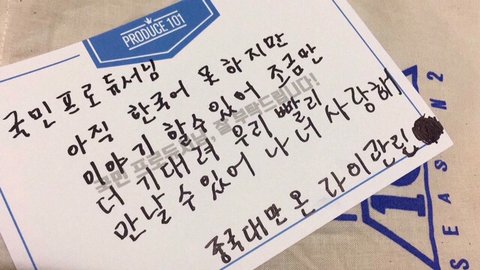 PRODUCE 101
국민 프로듀서님
아직 한국어 못 하지만
이야기 할 수 있어 조금만
국민 프로듀서님, 잘 부탁드립니다!
더 기대려 우리 빨리
만날 수 있어 나 너 사랑해
중국대만 온 라이관린
10
SEASON 2